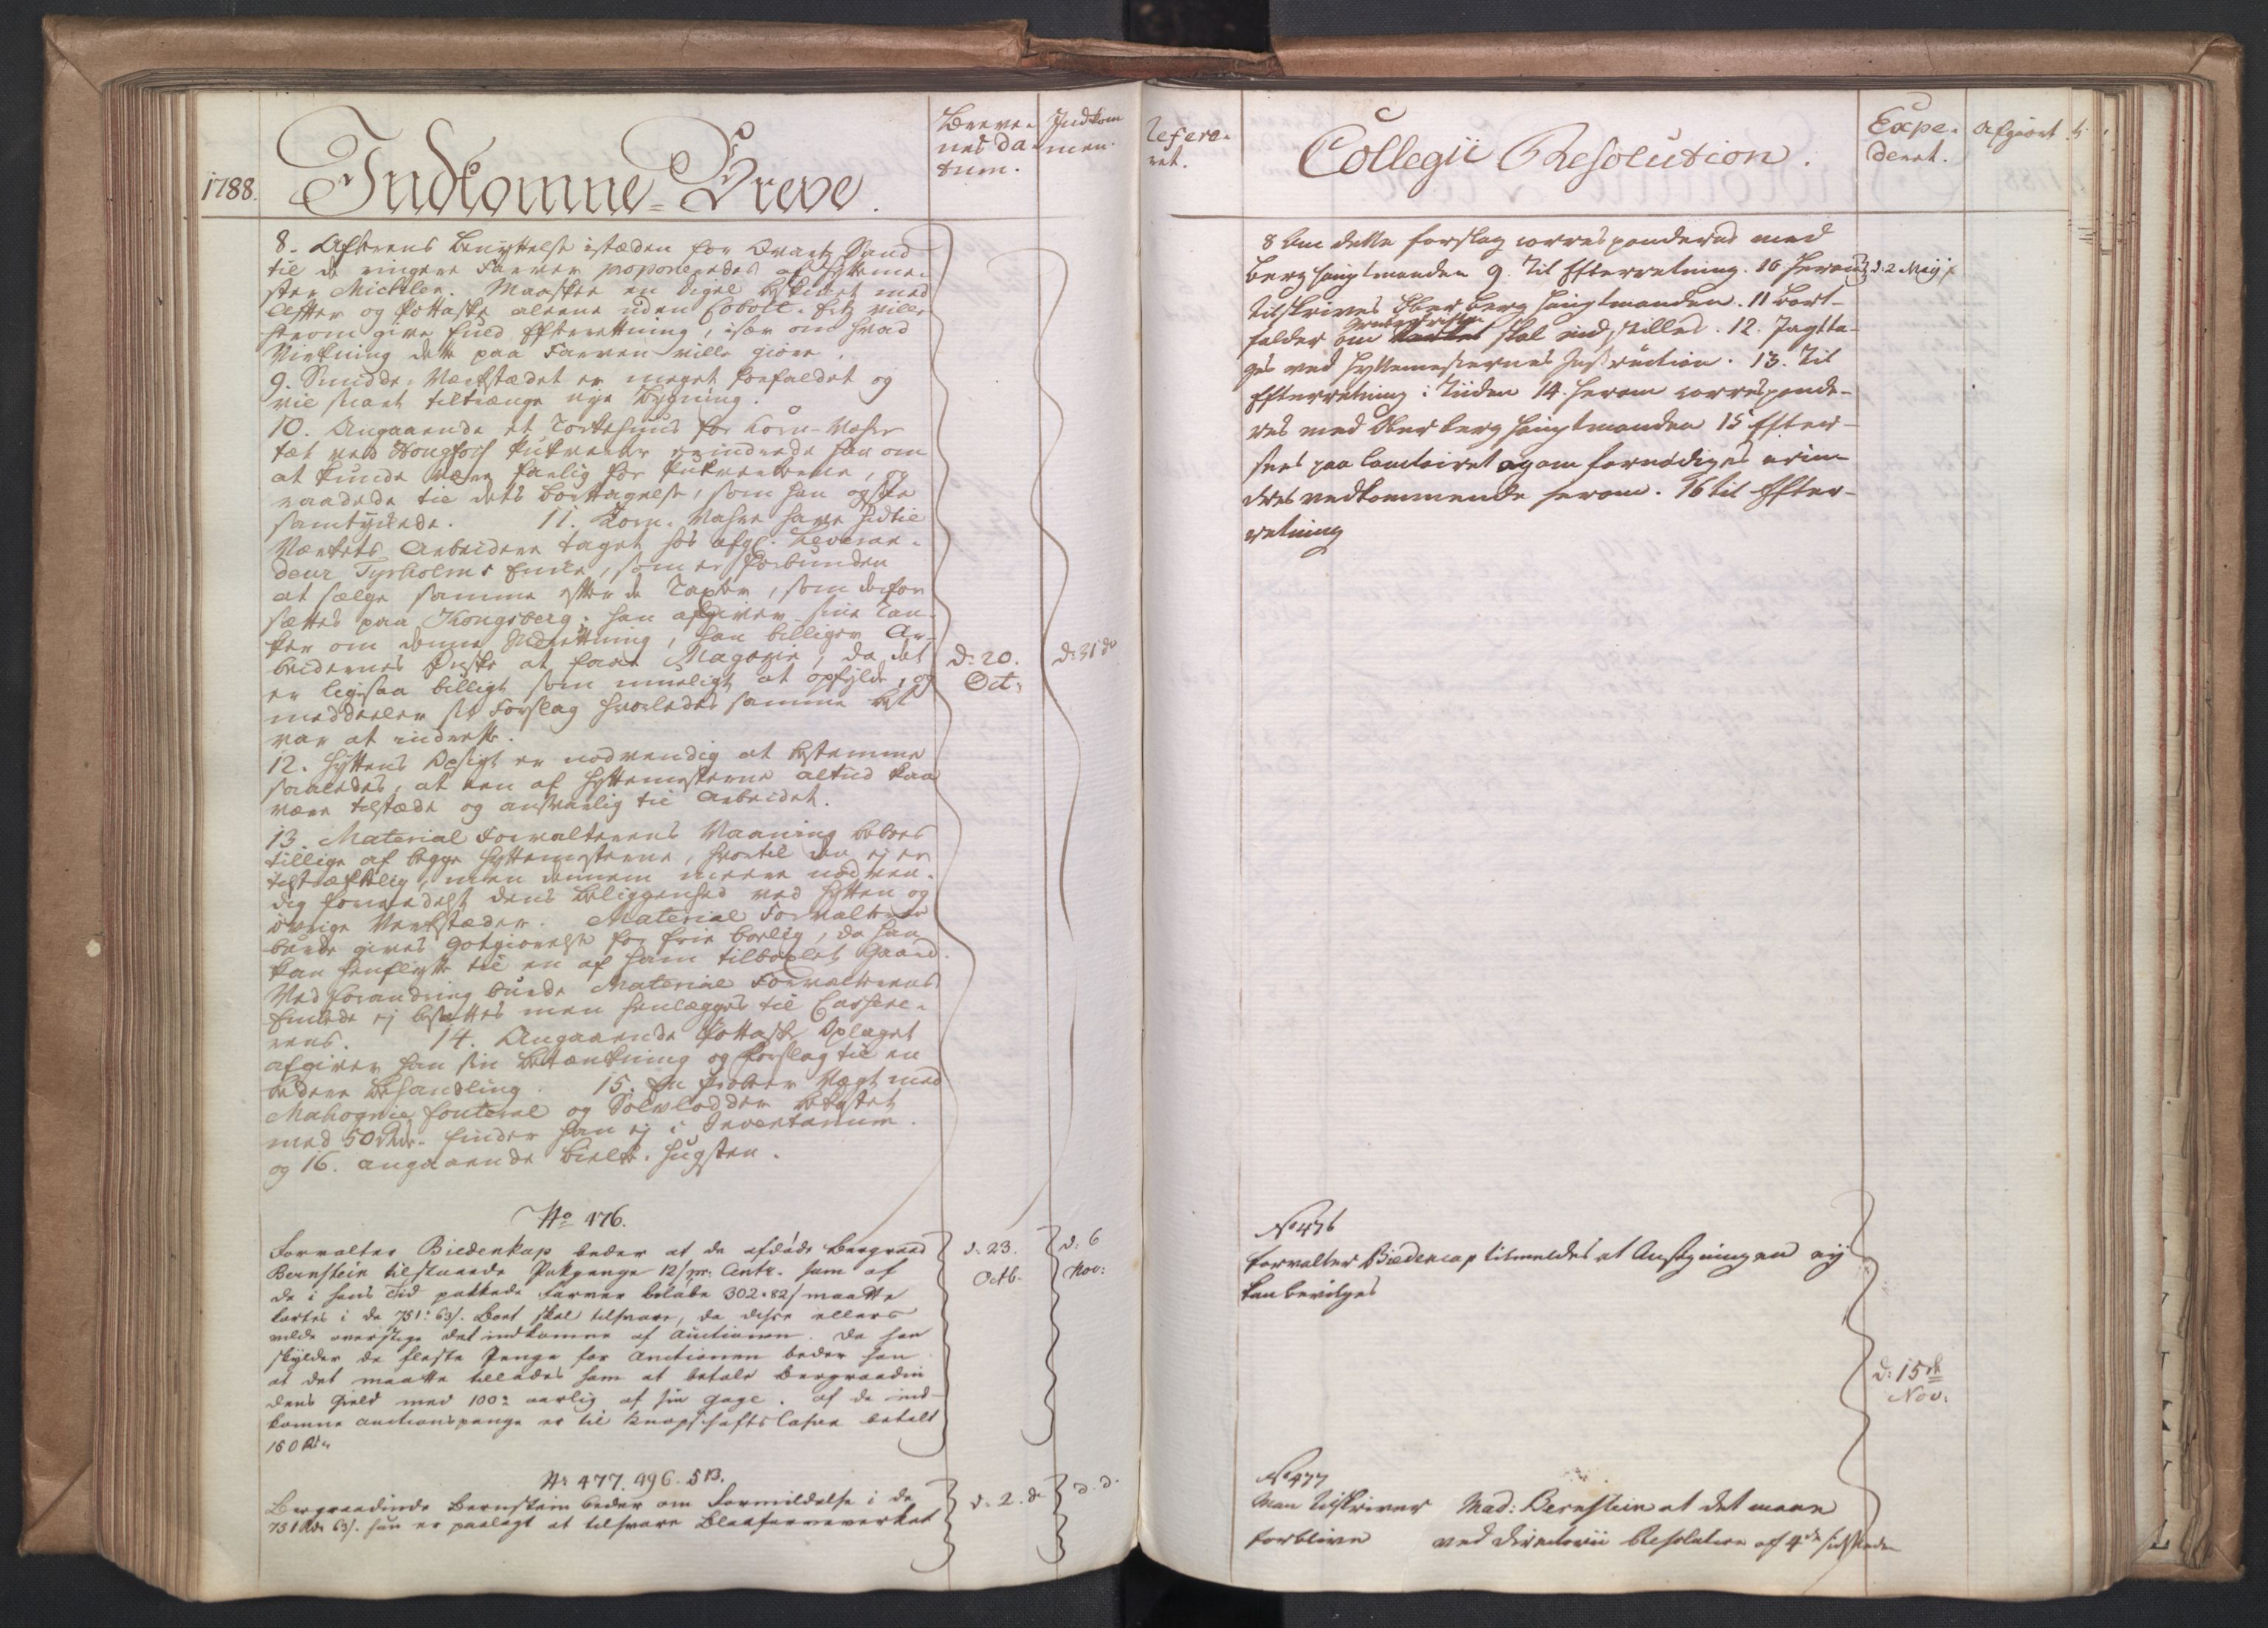 1788.
Indkomne Breve.
Brevenes Datum.
Indkommen.
8. Afterens Benyttelse istæden for Qvartz Sand
til de ringere Farver proponeredes af Hyttemester
Michelsen. Maaskee en digel beskicket med
After og Pottaske alene uden Cobolt
herom give fuld Efterretning, især om hvad
Virkning dette paa Farven ville giøre.
9. Smidde-Værkstædet er meget forfaldet og
vil snart tiltrænge nye Bygning.
10. Angaaende et Torkehuus for Korn-Vahre
tæt ved erindrede han om
at kunde være farlig for og
raadede til dets Borttagelse, som han ogsaa
samtykkede. 11. Korn-Vahre have hidtil
Værkets Arbeidere taget hos afg: Leverandeur
Tyrholms Enke, som er forbunden
at sælge samme efter de Taxter, som derfor
sættes paa Kongsberg. han afgiver sine Tanker
om denne Indretning, han billiger Arbeidernes
Ønske at faae Magazin, da det
er ligesaa billigt som mueligt at opfylde, og
meddeeler sit Forslag hvorledes samme best
var at indrette.
12. Hyttens Opsigt er nødvendig at bestemme
saaledes, at een af Hyttemesterne altiid kan
være tilstæde og ansvarlig til Arbeidet.
13. Material Forvalterens Vaaning beboes
tillige af begge Hyttemesterne, hvortil den ej er
tilstrækkelig, men dennem meere nødvendig
formedelst dens Beliggenhed ved Hytten og
øvrige Værkstæder. Material Forvalteren
burde gives Godtgiørelse for frie Bolig, da han
kan henflytte til en af ham tilkøbt Gaard.
Ved forandring burde Material Forvalterens
Embede ej besættes men henlægges til Casserens.
14. Angaaende Pottaske Oplaget
afgiver han sin Betænkning og Forslag til en
bedere Behandling. 15. En Probeer Vægt med
Mahognie Fouteral og Sølvlodder bekostet
med 50 Rdr. finder han ej i Inventarium.
og 16. angaaende Birke-hugsten.
d: 20.
Oct:
d: 31 do
No 476.
Forvalter Biedenkap beder at de afdøde Bergraad
Bernstein tilstaaede Pakpenge 12/ pr: Centr. som af
de i hans Tid pakkede Farver beløbe 302 " 82/ maatte
kortes i de 751 " 63/. Boet skal tilsvare, da disse ellers
vilde overstige det indkomne af Auctionen. da han
skylder de fleste Penge for Auctionen beder han
at det maatte tillades ham at betale Bergraadindens
Gield med 100 " aarlig af sin Gage. af de indkomne
auctionspenge er til Knapschafts Cassen betalt
150 Rd
d: 23.
Octb.
d: 6
Nov:
No 477. 496. 513.
Bergraadinde Bernstein beder om Formildelse i de
751 Rdr 63/. hun er paalagt at tilsvare Blaafarveverket
d: 2. do
d. d.
Refereret.
Collegii Resolution.
Expederet.
Afgiort
8 Om dette forslag corresponderes med
Berghauptmanden 9. Til Efterretning. 10 herom
tilskrives Oberberghauptmanden. 11 Bortfalder
om skal indstilles. 12. Jagttages
ved Hyttemesternes Instruction. 13. Til
Efterretning i Tiiden 14. herom corresponderes
med Oberberghauptmanden 15 Eftersees
paa Contoiret og om fornødiges erindres
vedkommende herom. 16 til Efterretning
d. 2 Maij
No 476
Forvalter Biedencap tilmeldes at Ansøgningen ey
kan bevilges
d: 15de
Nov:
No 477
Man tilskriver Mad: Bernstein at det maae
forblive ved Directorii Resolution af 4de sidstleden